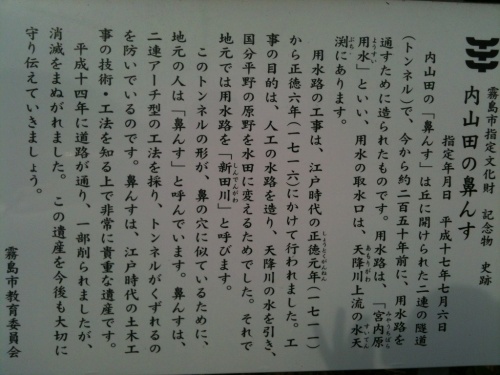 霧島市指定文化財 記念物 史跡
内山田の鼻んす
指定年月日 平成十七年七月六日
内山田の「鼻んす」は丘に開けられた二連の隧道
(トンネル)で、今から約二百五十年前に、用水路を
通すために造られたものです。用水路は、「宮内原
みやうちばら
用水」といい、用水の取水口は、天降川上流の水天
ようすい
あもりがわ
すいてん
渕にあります。
ぶち
用水路の工事は、江戸時代の正徳元年(一七一一)
しょうとくがんねん
から正徳六年(一七一六)にかけて行われました。工
事の目的は、人工の水路を造り、天降川の水を引き、
国分平野の原野を水田に変えるためでした。それで
地元では用水路を「新田川」と呼びます。
しんでんがわ
このトンネルの形が、鼻の穴に似ているために、
地元の人は「鼻んす」と呼んでいます。鼻んすは、
二連アーチ型の工法を採り、トンネルがくずれるの
を防いでいるのです。鼻んすは、江戸時代の土木工
事の技術・工法を知る上で非常に貴重な遺産です。
平成十四年に道路が通り、一部削られましたが、
消滅をまぬがれました。この遺産を今後も大切に
守り伝えていきましょう。
霧島市教育委員会